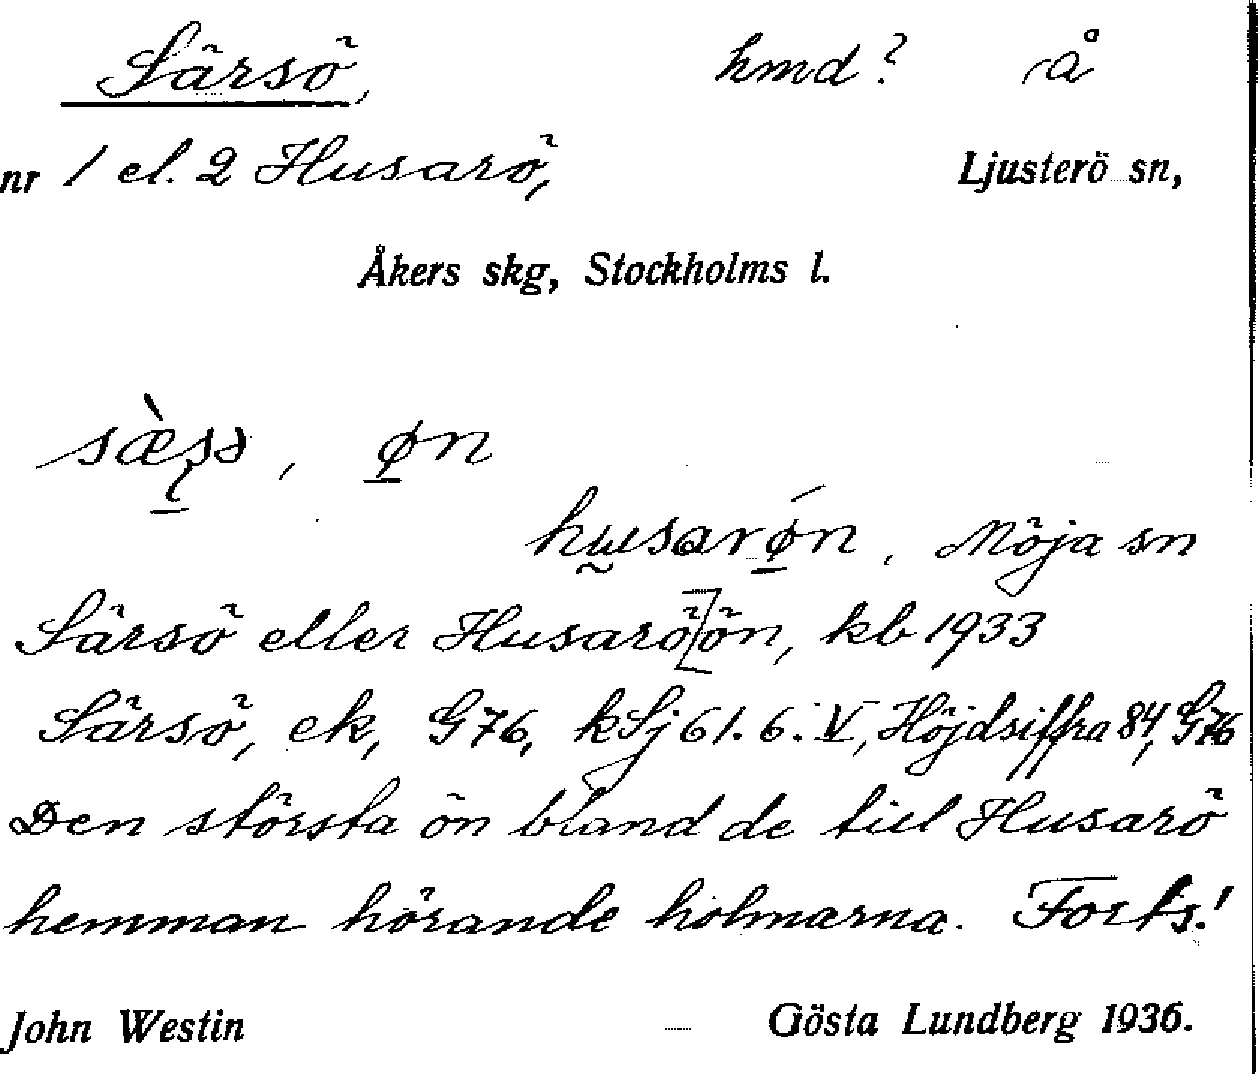 Särsö, hmd? å
nr 1 el. 2 Husarö, Ljusterö sn,
Åkers skg, Stockholms l.
øn
husarǿn, Möja sn
Särsö eller Husarö[ön, kb 1933
Särsö, ek, G76, kSj 61. 6. V, Höjdsiffra 84, G76
Den största ön bland de till Husarö
hemman hörande holmarna. Forts.!
John Westin Gösta Lundberg 1936.